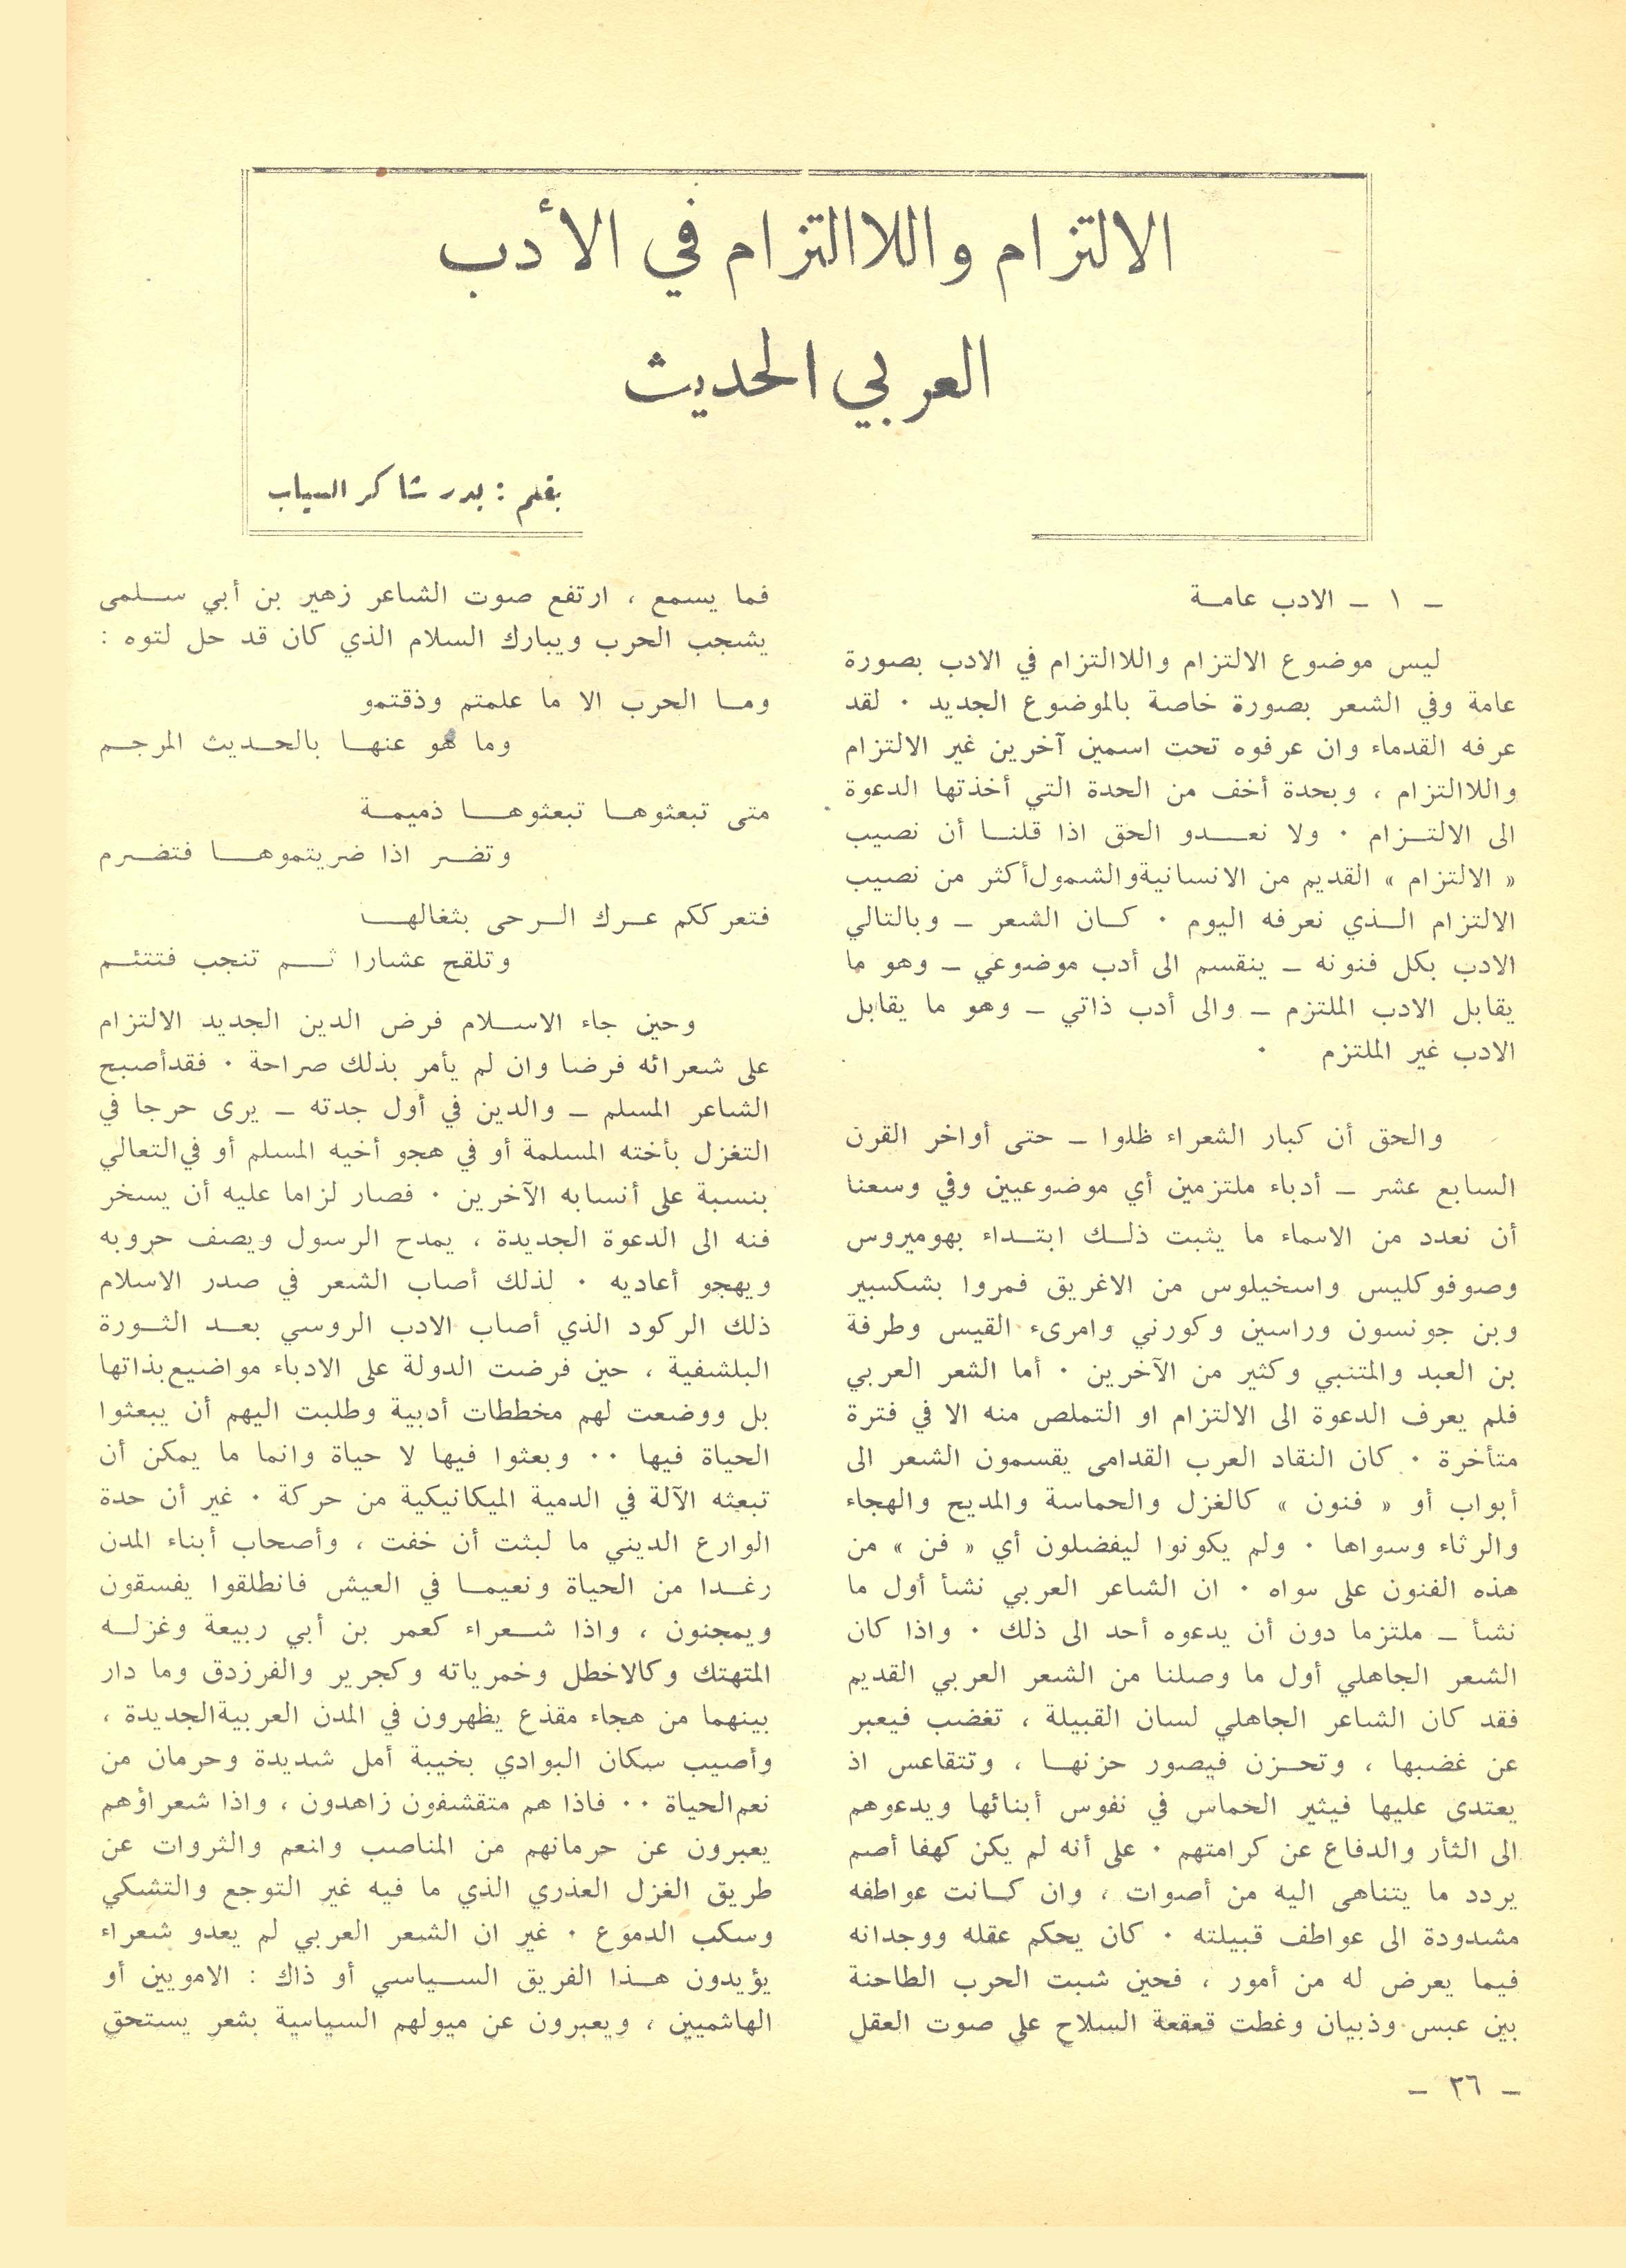 الالتزام واللاالتزام في الأدب
العربي الحديث
بقلم : بدر شاكر السياب
– ١ – الادب عامـة
ليس موضوع الالتزام واللاالتزام في الادب بصورة
عامة وفي الشعر بصورة خاصة بالموضوع الجديد ٠ لقد
عرفه القدماء وان عرفوه تحت اسمين آخرين غير الالتزام
واللاالتزام ، وبحدة أخف من الحدة التي أخذتها الدعوة
الى الالتـزام ٠ ولا نعـدو الحق اذا قلنـا أن نصيب
« الالتزام » القديم من الانسانية والشمول أكثر من نصيب
الالتزام الـذي نعرفه اليوم ٠ كـان الشعر – وبالتالي
الادب بكل فنونه – ينقسم الى أدب موضوعي – وهو ما
يقابل الادب الملتزم – والى أدب ذاتي – وهو ما يقابل
الادب غير الملتزم ٠
والحق أن كبار الشعراء ظلوا – حتى أواخر القرن
السابع عشر – أدباء ملتزمين أي موضوعيين وفي وسعنا
أن نعدد من الاسماء ما يثبت ذلـك ابتـداء بهوميروس
وصوفوكليس واسخيلوس من الاغريق فمروا بشكسبير
وبن جونسون وراسين وكورني وامرىء القيس وطرفة
بن العبد والمتنبي وكثير من الآخرين ٠ أما الشعر العربي
فلم يعرف الدعوة الى الالتزام او التملص منه الا في فترة
متأخرة ٠ كان النقاد العرب القدامى يقسمون الشعر الى
أبواب أو « فنون » كالغزل والحماسة والمديح والهجاء
والرثاء وسواها ٠ ولم يكونوا ليفضلون أي « فن » من
هذه الفنون على سواه ٠ ان الشاعر العربي نشأ أول ما
نشأ – ملتزما دون أن يدعوه أحد الى ذلك ٠ واذا كان
الشعر الجاهلي أول ما وصلنا من الشعر العربي القديم
فقد كان الشاعر الجاهلي لسان القبيلة ، تغضب فيعبر
عن غضبها ، وتحـزن فيصور حزنهـا ، وتتقاعس اذ
يعتدى عليها فيثير الحماس في نفوس أبنائها ويدعوهم
الى الثأر والدفاع عن كرامتهم ٠ على أنه لم يكن كهفا أصم
يردد ما يتناهى اليه من أصوات ، وان كـانت عواطفه
مشدودة الى عواطف قبيلته ٠ كان يحكم عقله ووجدانه
فيما يعرض له من أمور ، فحين شبت الحرب الطاحنة
بين عبس وذبيان وغطت قعقعة السلاح على صوت العقل
فما يسمع ، ارتفع صوت الشاعر زهير بن أبي سـلمى
يشجب الحرب ويبارك السلام الذي كان قد حل لتوه :
ومـا الحرب الا ما علمتم وذقتمو
وما هو عنهـا بالحـديث المرجـم
متى تبعثوهـا تبعثوهـا ذميمـة
وتضـر اذا ضريتموهـا فتضـرم
فتعرككم عـرك الـرحى بثفالهـا
وتلقح عشارا ثـم تنجب فتتئـم
وحين جاء الاسـلام فرض الدين الجديد الالتزام
على شعرائه فرضا وان لم يأمر بذلك صراحة ٠ فقد أصبح
الشاعر المسلم – والدين في أول جدته – يرى حرجا في
التغزل بأخته المسلمة أو في هجو أخيه المسلم أو في التعالي
بنسبة على أنسابه الآخرين ٠ فصار لزاما عليه أن يسخر
فنه الى الدعوة الجديدة ، يمدح الرسول ويصف حروبه
ويهجو أعاديه ٠ لذلك أصاب الشعر في صدر الاسلام
ذلك الركود الذي أصاب الادب الروسي بعـد الثـورة
البلشفية ، حين فرضت الدولة على الادباء مواضيع بذاتها
بل ووضعت لهم مخططات أدبية وطلبت اليهم أن يبعثوا
الحياة فيها ٠٠ وبعثوا فيها لا حياة وانما ما يمكن أن
تبعثه الآلة في الدمية الميكانيكية من حركة ٠ غير أن حدة
الوازع الديني ما لبثت أن خفت ، وأصحاب أبناء المدن
رغـدا من الحياة ونعيمـا في العيش فانطلقوا يفسقون
ويمجنون ، واذا شـعراء كعمر بن أبي ربيعة وغزلـه
المتهتك وكالاخطل وخمرياته وكجرير والفرزدق وما دار
بينهما من هجاء مقذع يظهرون في المدن العربية الجديدة ،
وأصيب سكان البوادي بخيبة أمل شديدة وحرمان من
نعم الحياة ٠٠ فاذا هم متقشفون زاهدون ، واذا شعراؤهم
يعبرون عن حرمانهم من المناصب وانعم والثروات عن
طريق الغزل العذري الذي ما فيه غير التوجع والتشكي
وسكب الدموع ٠ غير ان الشعر العربي لم يعدو شعراء
يؤيدون هـذا الفريق السـياسي أو ذاك : الامويين أو
الهاشميين ، ويعبرون عن ميولهم السياسية بشعر يستحق
– ٣٦ –